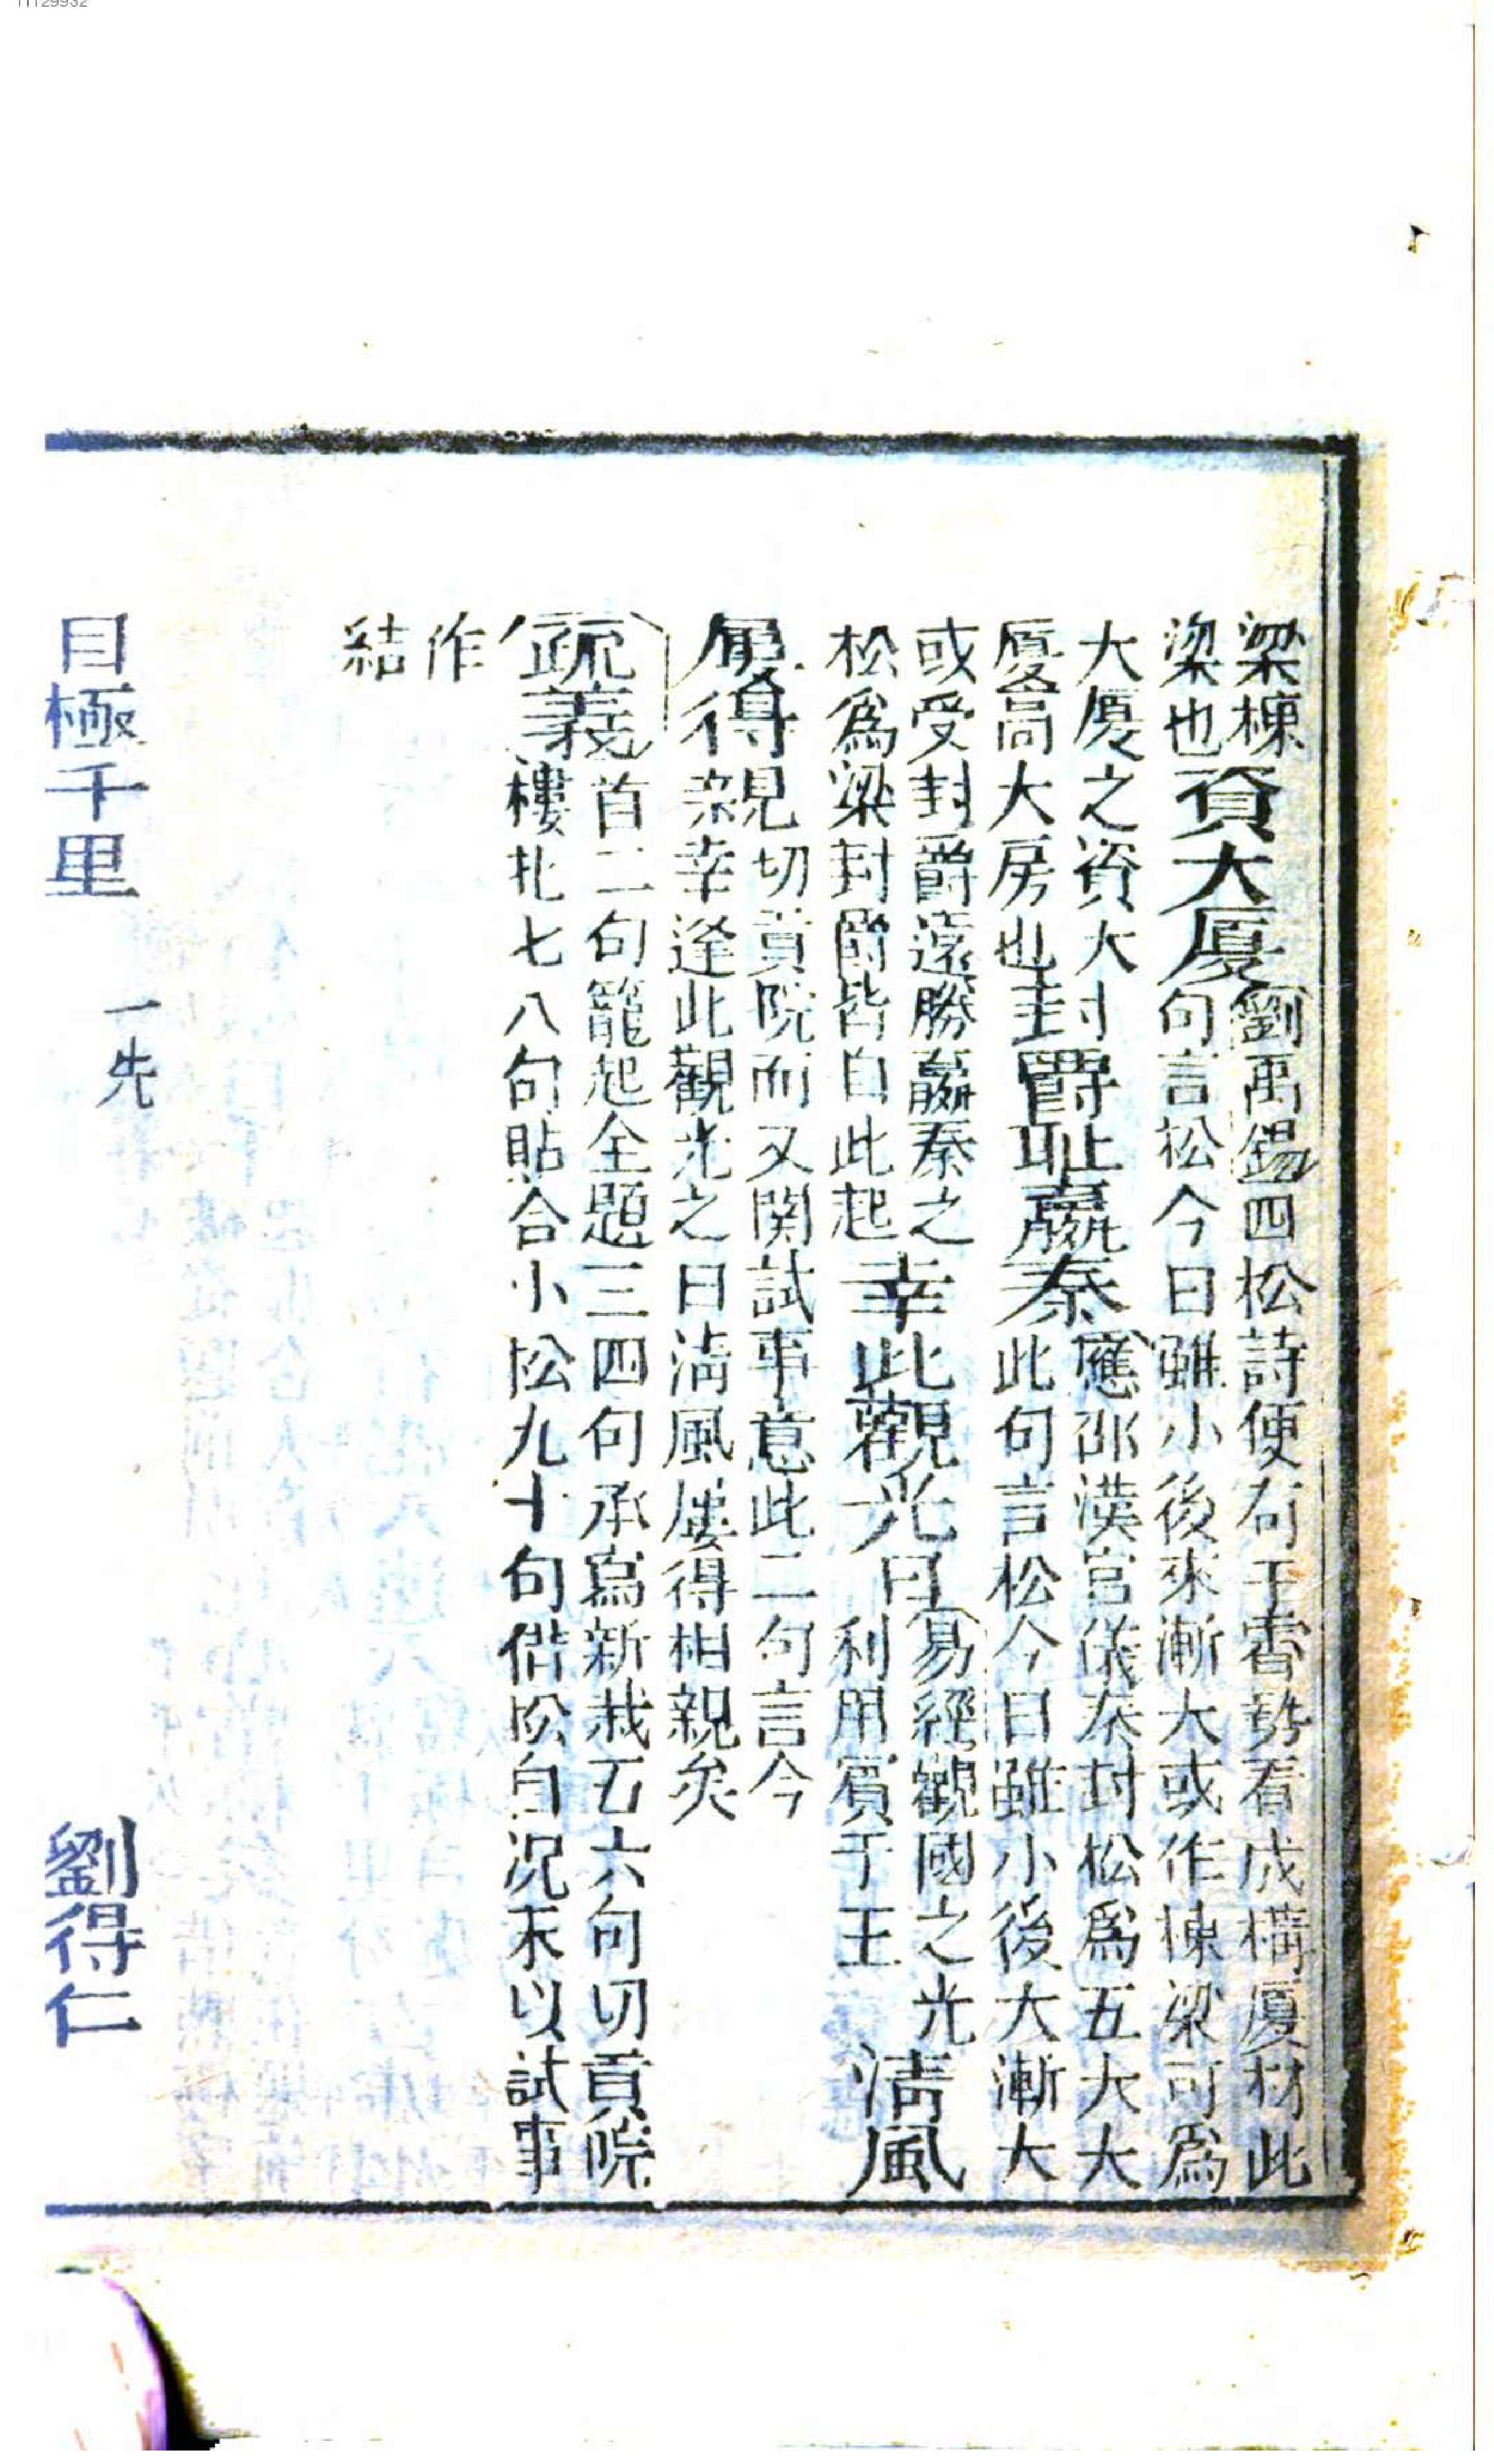 梁棟
梁也
資大厦
劉禹錫四松詩便有干霄勢看成構厦材此
句言松今日雖小後來漸大或作棟梁可爲
大厦之資大
厦高大房也
封爵耻嬴秦
應邵漢官儀秦封松爲五大大
此句言松今日雖小後大漸大
或受封爵遠勝嬴秦之
松爲梁封爵皆自此起
幸此觀光日
易經觀國之光
利用賓于王
清風
屢得親
切貢院而又関試事意此二句言今
幸逢此觀光之日清風屢得相親矣
疏義
首二句籠起全題三四句承寫新栽五六句切貢院
樓扎七八句貼合小松九十句借松自况末以試事
作
結
目極千里 一先 劉得仁